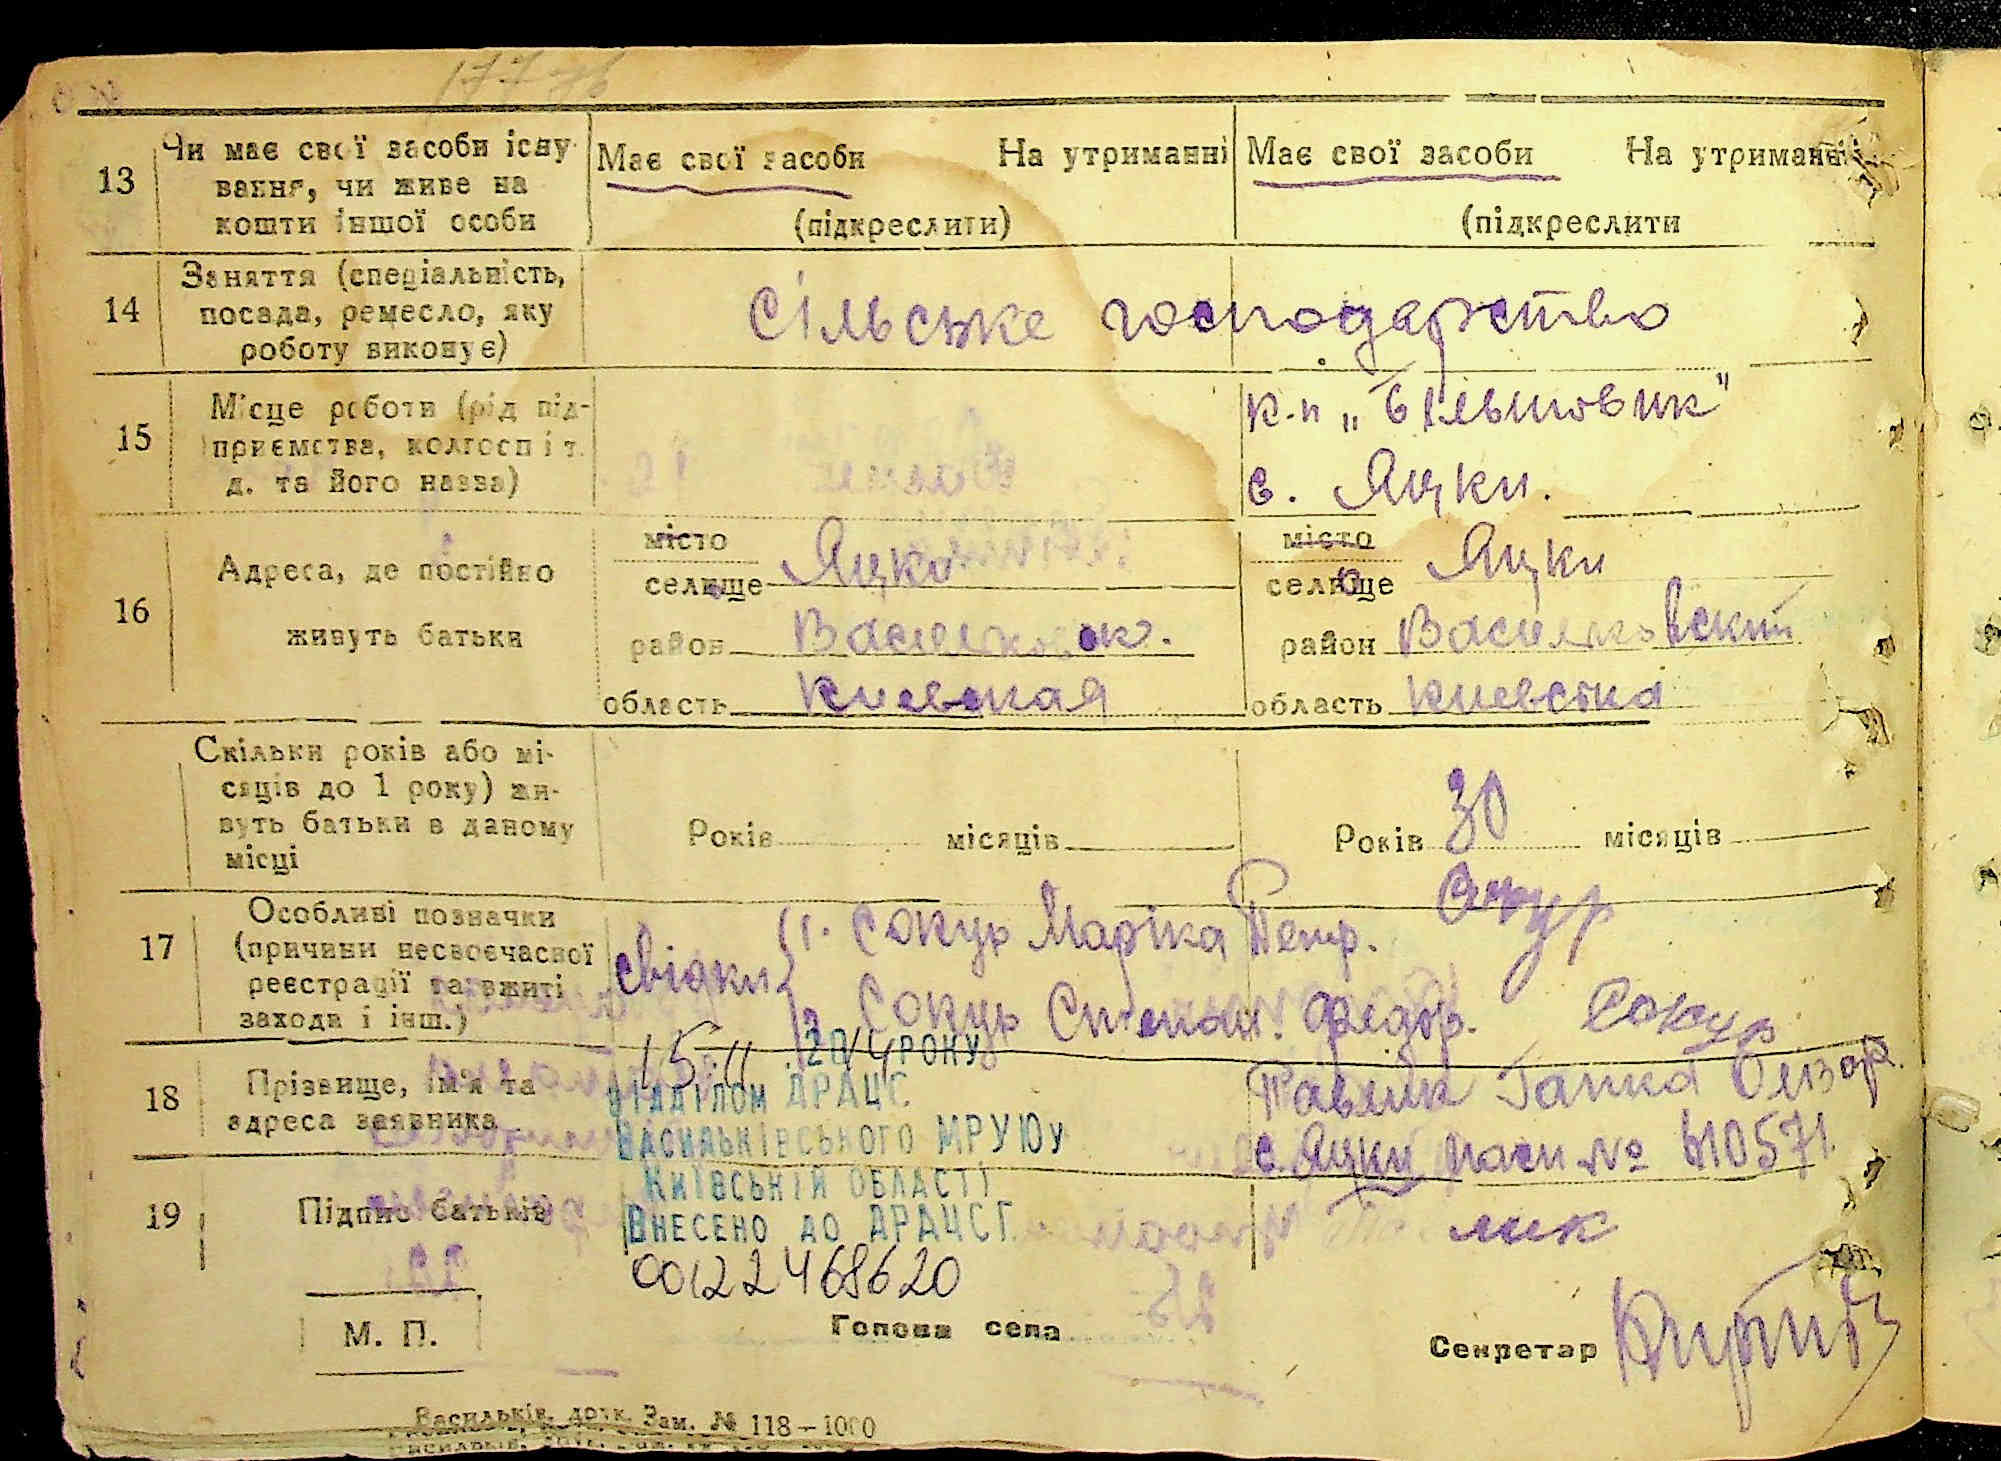 13
Чи має свої засоби існу-
вання, чи живе на
кошти іншої особи
Має свої засоби На утриманні
(підкреслити)
Має свої засоби На утриманні
(підкреслити
14
Заняття (спеціальність,
посада, ремесло, яку
роботу виконує)
Сільське господарство
15
Місце роботи (рід під-
приємства, колгосп і т.
д. та його назва)
к-п „Більшовик"
с. Яцки.
16
Адреса, де постійно
живуть батьки
місто
селище Яцки
район Васильковск.
область Киевская
місто
селище Яцки
район Васильковский
область Киевска
Скільки років або мі-
сяців до 1 року) жи-
вуть батьки в даному
місці
Років місяців
Років 30 місяців
17
Особливі позначки
(причини несвоєчасної
реєстрації та вжиті
заходи і інш.)
Свідки
1. Сокур Марійка Петр.
2. Сокур Степан. Федор. Сокур
18
Прізвище, ім'я та
адреса заявника
Павлик Ганка Олізар.
с. Яцки пасп № 410571.
15 11 2014 РОКУ
ВІДДІЛОМ ДРАЦС
ВАСИЛЬКІВСЬКОГО МРУЮ У
КИЇВСЬКІЙ ОБЛАСТІ
ВНЕСЕНО ДО ДРАЦСГ
00122468620
19
Підпис батьків
М. П.
Голова села
Секретар
Васильків, друк. Зам. № 118—1000